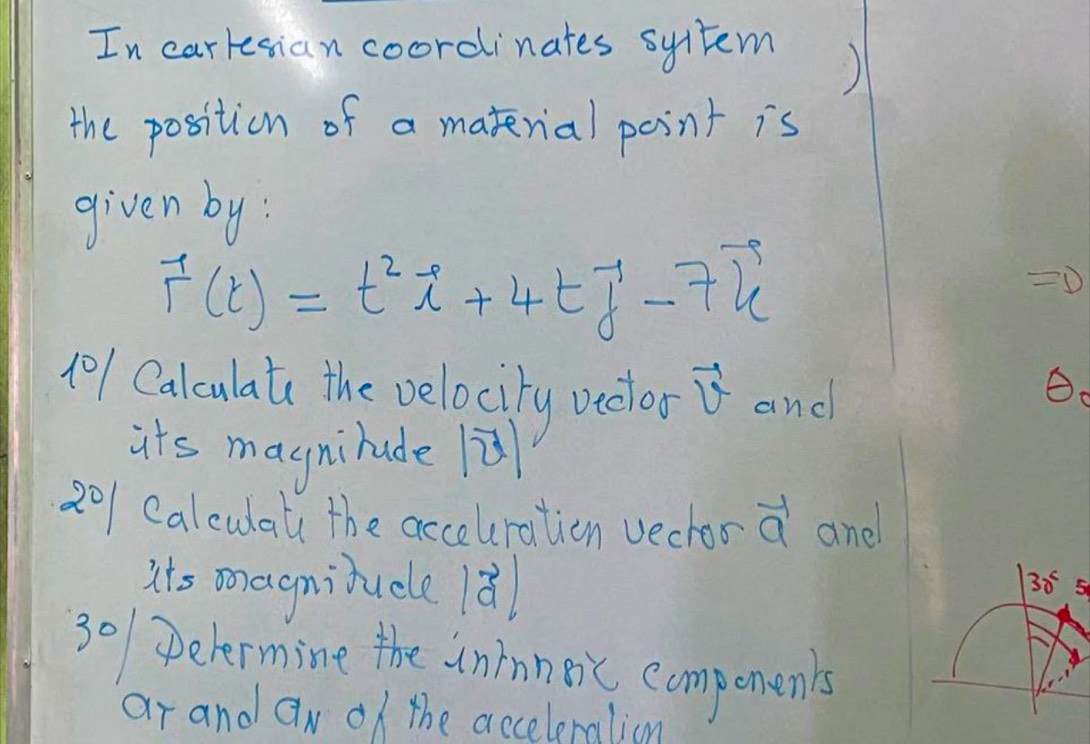 In cartesian coordinates system
the position of a material point is
given by:
r⃗(t) = t² i⃗ + 4t j⃗ - 7 k⃗
1°/ Calculate the velocity vector v⃗ and
its magnitude |v⃗|
2°/ Calculate the acceleration vector a⃗ and
its magnitude |a⃗|
3°/ Determine the intrinsic components
aT and aN of the acceleration
=D
θ
30°